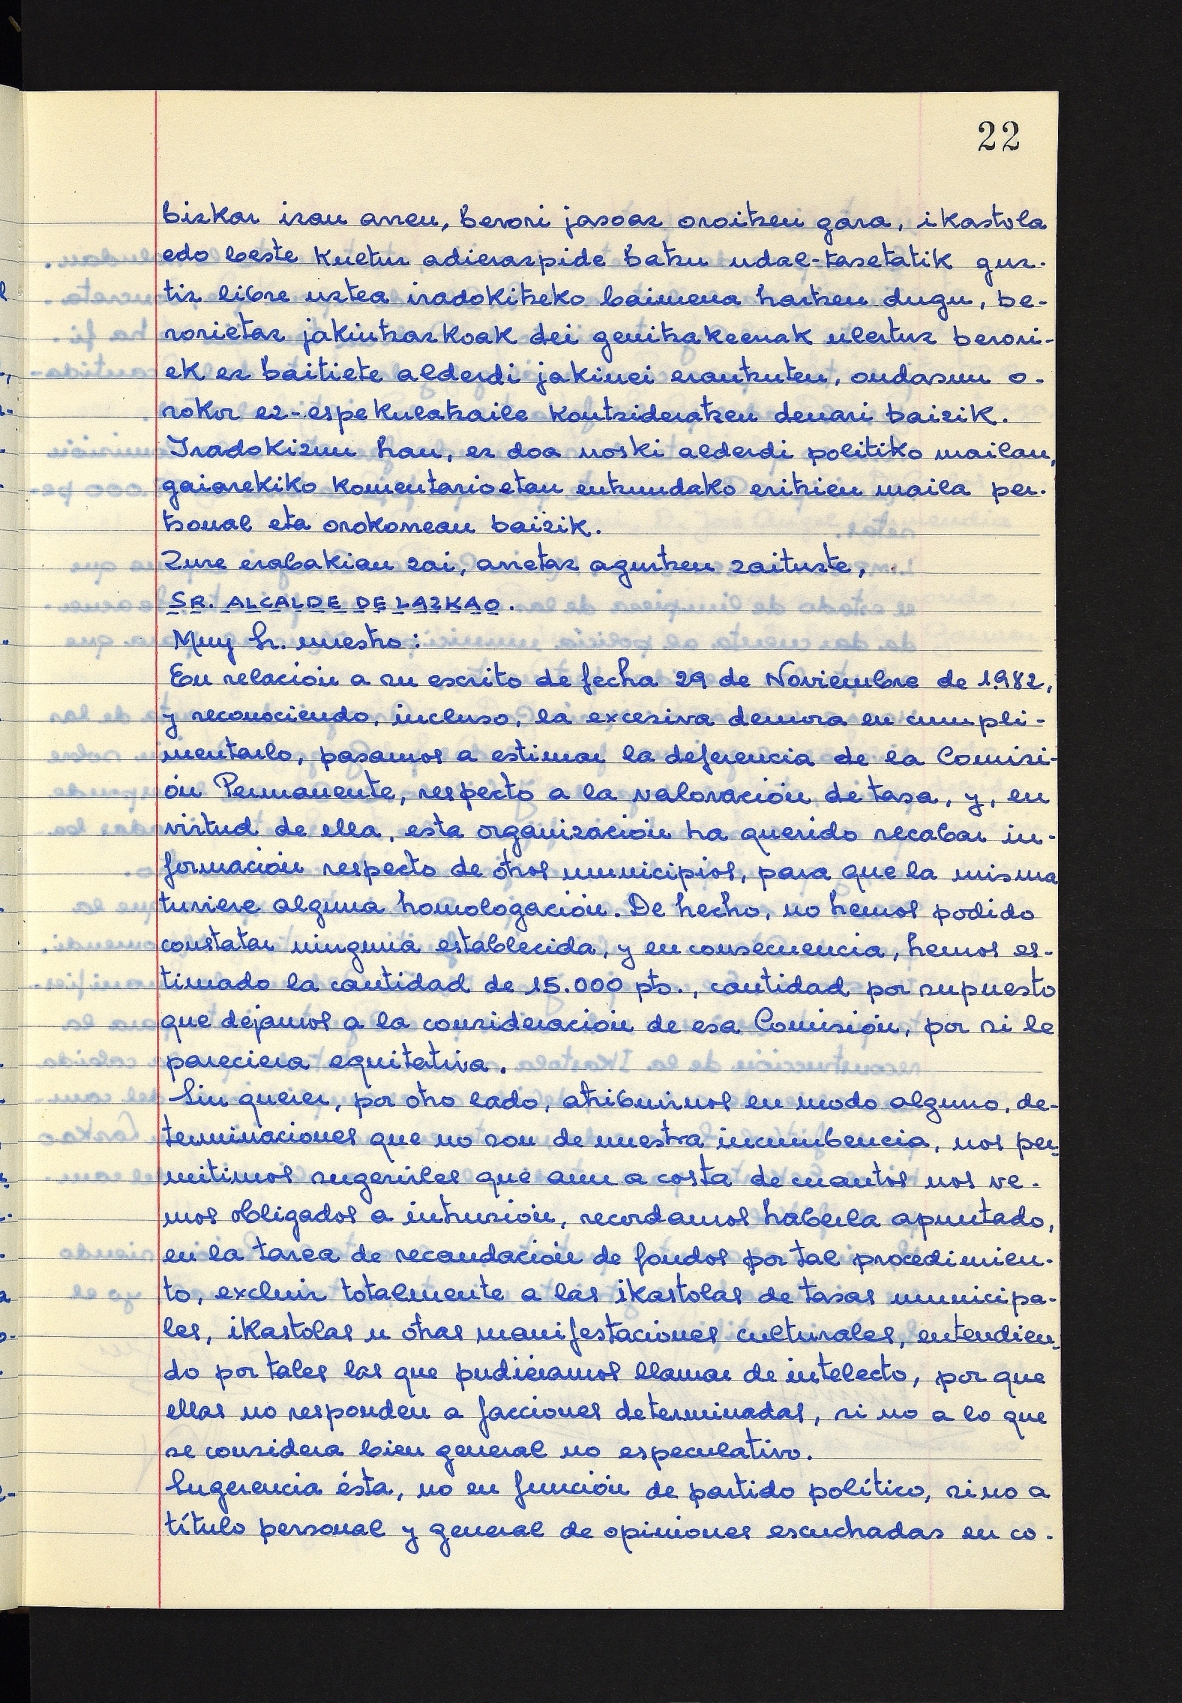 22
bizkar izan arren, berori jasoaz oroitzen gara, ikastola
edo beste kultur adierazpide batzu udal-tasetatik guz-
tiz libre uztea iradokitzeko baimena hartzen dugu, be-
rorietaz jakintzazkoak dei genitzakeenak ulertuz berori-
ek ez baitiete alderdi jakinei erantzuten, ondasun o-
rokor ez-espekulatzaile kontzideratzen denari baizik.
Iradokizun hau, ez doa noski alderdi politiko mailan,
gaiarekiko komentarioetan entzundako eritzien maila per-
tsonal eta orokorrean baizik.
Zure erabakian zai, arretaz agurtzen zaituzte,
SR. ALCALDE DE LAZKAO.
Muy Sr. nuestro:
En relación a su escrito de fecha 29 de Noviembre de 1.982,
y reconociendo, incluso, la excesiva demora en cumpli-
mentarlo, pasamos a estimar la deferencia de la Comisi-
ón Permanente, respecto a la valoración de tasa, y, en
virtud de ella, esta organización ha querido recabar in-
formación respecto de otros municipios, para que la misma
tuviese alguna homologación. De hecho, no hemos podido
constatar ninguna establecida, y en consecuencia, hemos es-
timado la cantidad de 15.000 pts., cantidad por supuesto
que dejamos a la consideración de esa Comisión, por si le
pareciera equitativa.
Sin querer, por otro lado, atribuirnos en modo alguno, de-
terminaciones que no son de nuestra incumbencia, nos per-
mitimos sugerirles que aun a costa de cuantos nos ve-
mos obligados a intrusión, recordamos haberla apuntado,
en la tarea de recaudación de fondos por tal procedimien-
to, excluir totalmente a las ikastolas de tasas municipa-
les, ikastolas u otras manifestaciones culturales, entendien-
do por tales las que pudiéramos llamar de intelecto, por que
ellas no responden a facciones determinadas, si no a lo que
se considera bien general no especulativo.
Sugerencia ésta, no en función de partido político, sino a
título personal y general de opiniones escuchadas en co-